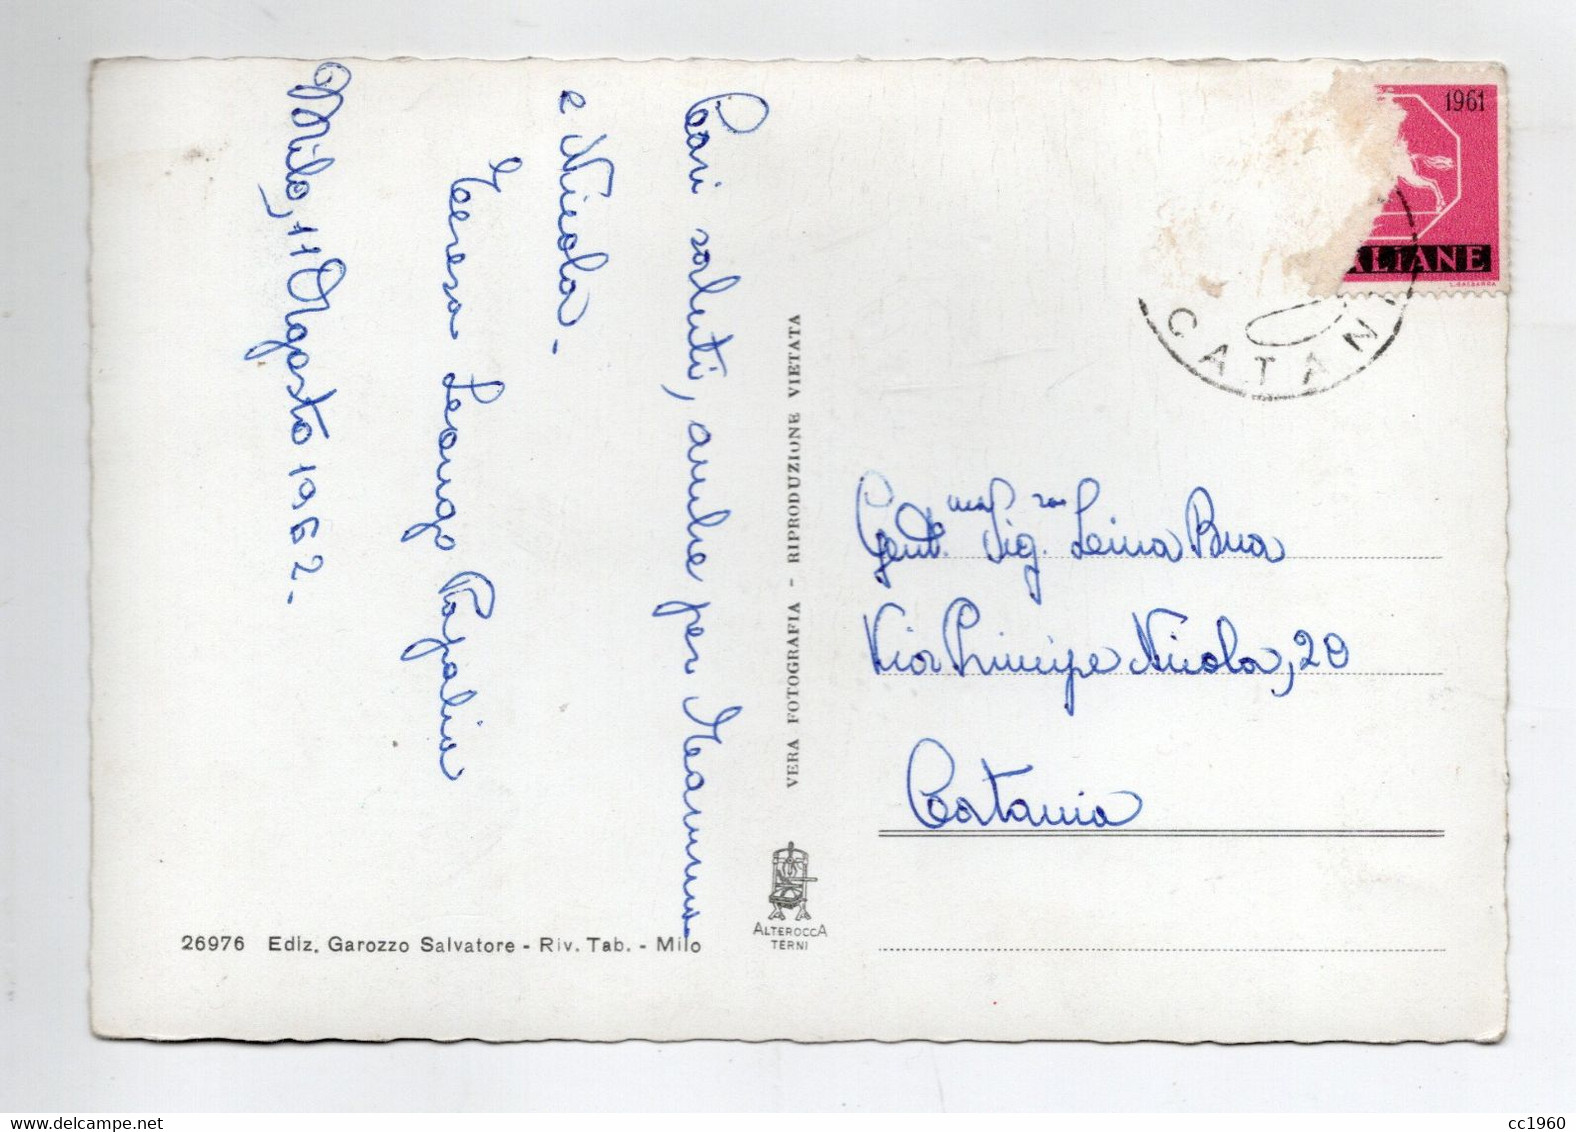 Milo, 11 Agosto 1962.
Cari saluti, anche per Mamma
e Nicola.
Teresa Leongo Papalia
VERA FOTOGRAFIA - RIPRODUZIONE VIETATA
1961
ALIANE
CATAN
Gent.ma Sig.ra Leina Bua
Via Principe Nicola, 20
Catania
ALTEROCCA
TERNI
26976 Ediz. Garozzo Salvatore - Riv. Tab. - Milo
cc1960